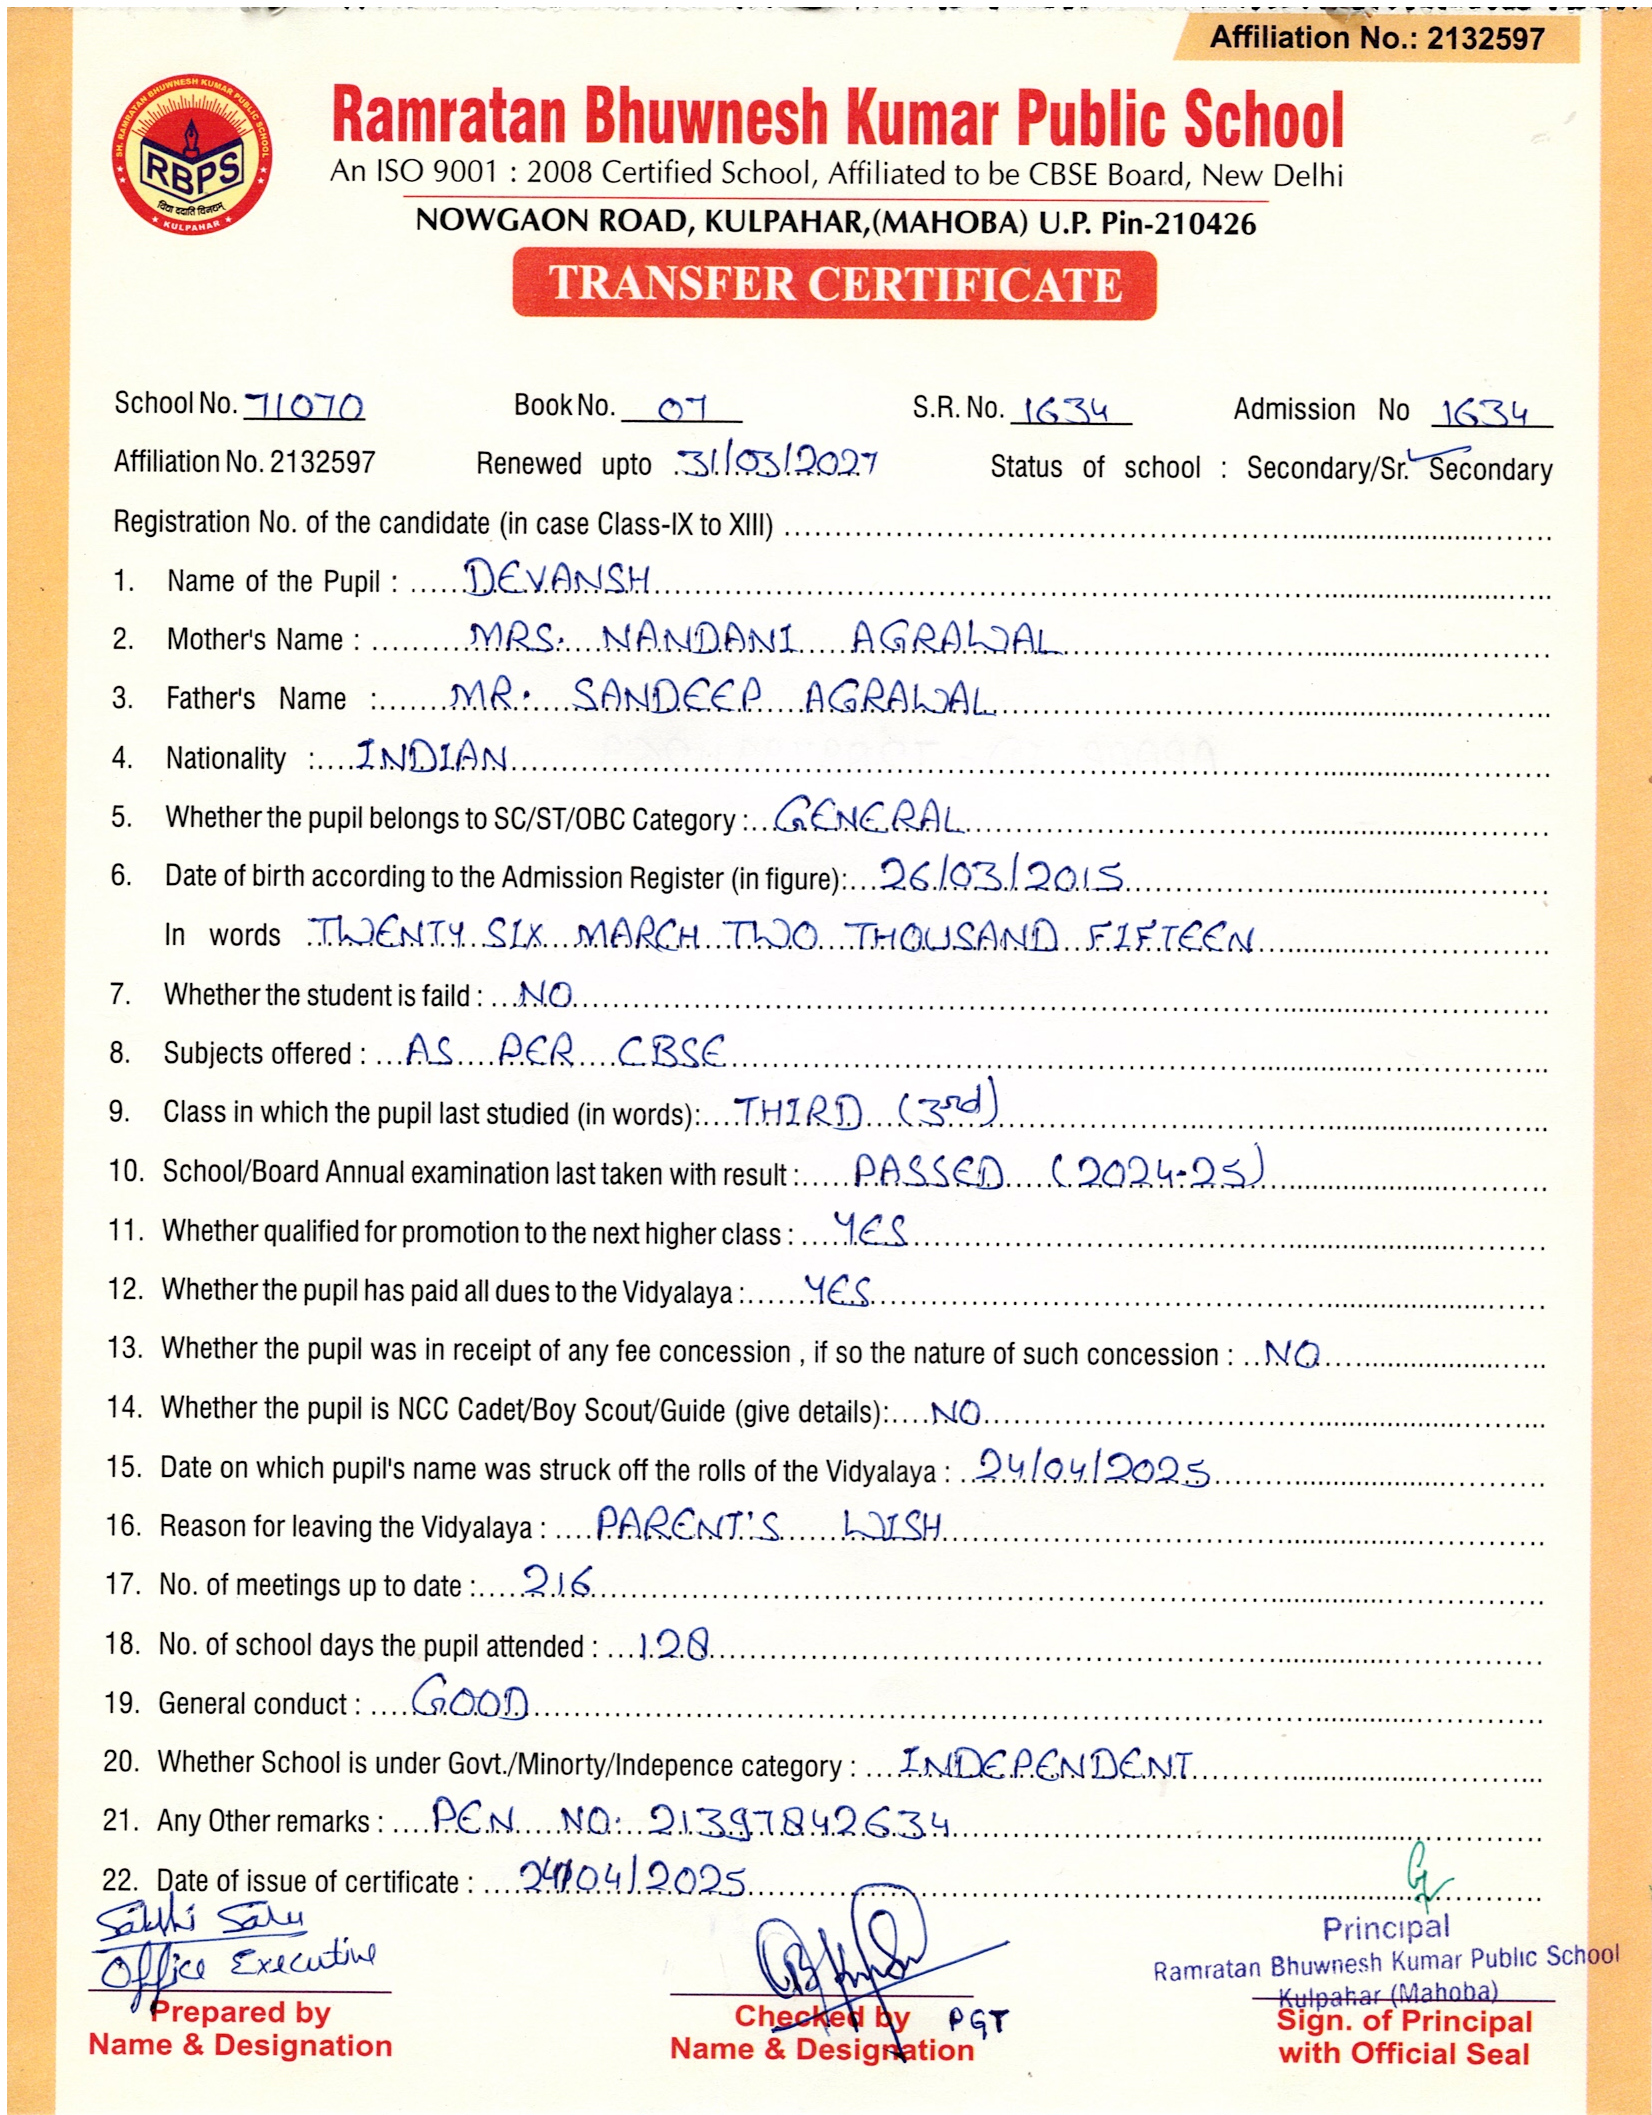 Affiliation No.: 2132597
SH. RAMRATAN BHUWNESH KUMAR PUBLIC SCHOOL
RBPS
विद्या ददाति विनयम्
KULPAHAR
Ramratan Bhuwnesh Kumar Public School
An ISO 9001 : 2008 Certified School, Affiliated to be CBSE Board, New Delhi
NOWGAON ROAD, KULPAHAR,(MAHOBA) U.P. Pin-210426
TRANSFER CERTIFICATE
School No. 71070 Book No. 07 S.R. No. 1634 Admission No 1634
Affiliation No. 2132597 Renewed upto 31/03/2027 Status of school : Secondary/Sr. Secondary
Registration No. of the candidate (in case Class-IX to XIII)
1. Name of the Pupil : DEVANSH
2. Mother's Name : MRS. NANDANI AGRAWAL
3. Father's Name : MR. SANDEEP AGRAWAL
4. Nationality : INDIAN
5. Whether the pupil belongs to SC/ST/OBC Category : GENERAL
6. Date of birth according to the Admission Register (in figure): 26/03/2015
In words TWENTY SIX MARCH TWO THOUSAND FIFTEEN
7. Whether the student is faild : NO
8. Subjects offered : AS PER CBSE
9. Class in which the pupil last studied (in words): THIRD (3rd)
10. School/Board Annual examination last taken with result : PASSED (2024-25)
11. Whether qualified for promotion to the next higher class : YES
12. Whether the pupil has paid all dues to the Vidyalaya : YES
13. Whether the pupil was in receipt of any fee concession , if so the nature of such concession : NO
14. Whether the pupil is NCC Cadet/Boy Scout/Guide (give details): NO
15. Date on which pupil's name was struck off the rolls of the Vidyalaya : 24/04/2025
16. Reason for leaving the Vidyalaya : PARENT'S WISH
17. No. of meetings up to date : 216
18. No. of school days the pupil attended : 128
19. General conduct : GOOD
20. Whether School is under Govt./Minorty/Indepence category : INDEPENDENT
21. Any Other remarks : PEN NO. 21397842634
22. Date of issue of certificate : 24/04/2025
Sakshi Sahu
Office Executive
Prepared by
Name & Designation
Checked by PGT
Name & Designation
Principal
Ramratan Bhuwnesh Kumar Public School
Kulpahar (Mahoba)
Sign. of Principal
with Official Seal